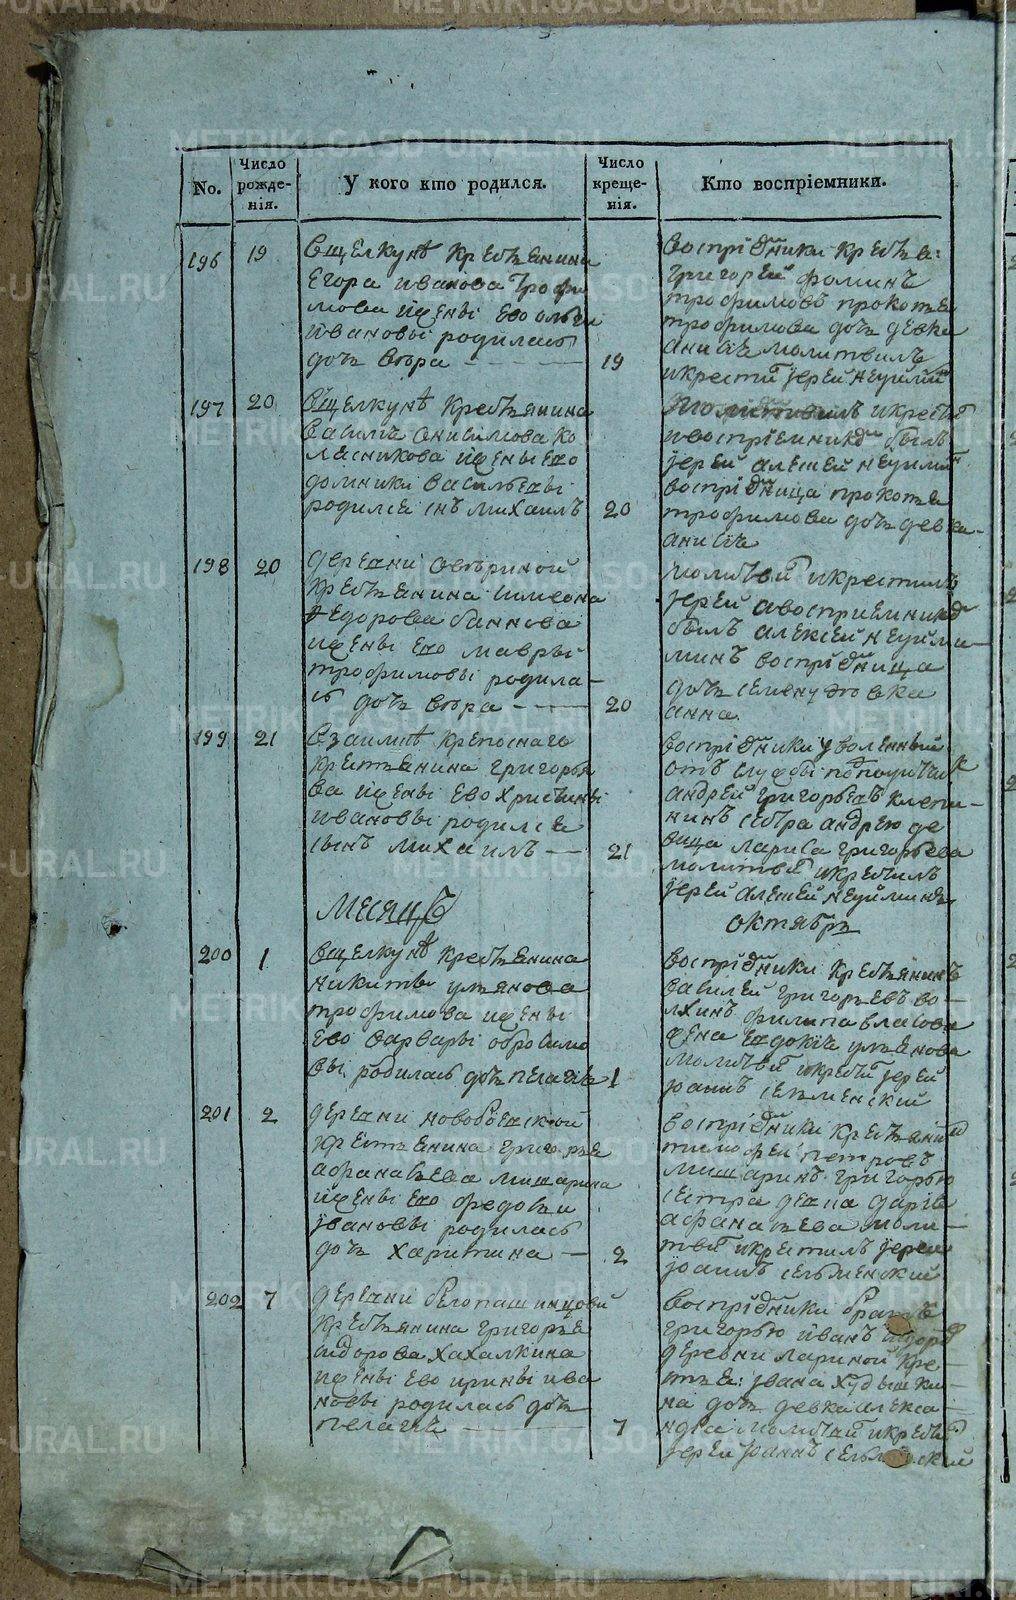 No.
Число рожде-нія.
У кого кто родился.
Число креще-нія.
Кто воспріемники.
196
19
Вщелкунѣ крестьянина
Егора иванова трофи
мова ижены Ево ольги
ивановы родилась
дочь вѣра
19
воспріемники крестья:
григорей фоминъ
трофимовъ прокопья
трофимова дочь девка
анисія молитвилъ
икрестилъ іерей неуйминъ
197
20
Вщелкунѣ крестьянина
василья анисимова ко
лясникова ижены Ево
домники васильевы
родился снъ михаилъ
20
молитвилъ икрестил
ивоспріемникомъ былъ
іерей алексей неуйминъ
воспріемница прокопья
трофимова дочь девка
анисія
198
20
деревни аверіной
крестьянина симеона
Федорова баннова
ижены Ево мавры
трофимовы родила-
сь дочь вѣра
20
молитвил икрестилъ
іерей авосприемником
былъ алексей неуйми-
минъ воспріемница
дочь девка
анна
199
21
взаимкѣ крепоснаго
крестьянина григорья
ижены Ево христины
ивановы родился
сынъ михаилъ
21
воспріемники уволенный
отъ службы подпоручик
андрей григорьевъ клепи
нинъ сестра андрею де
вица лариса григорьева
молитвил икрестилъ
іерей алексей неуйминъ
месяцъ
октябрь
200
1
Вщелкунѣ крестьянина
никиты ульянова
трофимова ижены
Ево варвары абросимо
вы родилась дочь пелагия
1
воспріемники крестьянинъ
василей григорьевъ во-
лхинъ филипа власова
жена Евдокія ульянова
молитвил икрестил іерей
іоаннъ сельменский
201
2
деревни новоборской
крестьянина григорья
афанасьева мишарина
ижены Ево федосьи
івановы родилась
дочь харитина
2
воспріемники крестьянин
тимофей петровъ
мишаринъ григорью
сестра девка дарія
афанасьева моли-
твил икрестилъ іерей
іоаннъ сельменский
202
7
деревни белопашинцовой
крестьянина григорья
сидорова хахалкина
ижены Ево ирины ива
новы родилась дочь
пелагия
7
воспріемники братъ
григорью иванъ сидоров
деревни лариной кре-
стья: івана худышки-
на дочь девка алекса-
ндра молитвил икрестил
іерей іоаннъ сельменский
METRIKI.GASO-URAL.RU